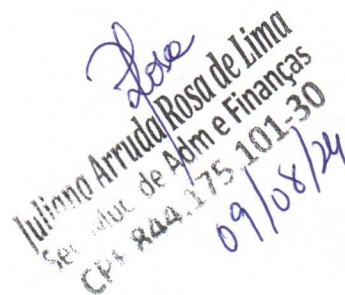 Rosa
Juliano Arruda Rosa de Lima
Sec Mun. de Adm e Finanças
CPF 844.175.101-30
09/08/24